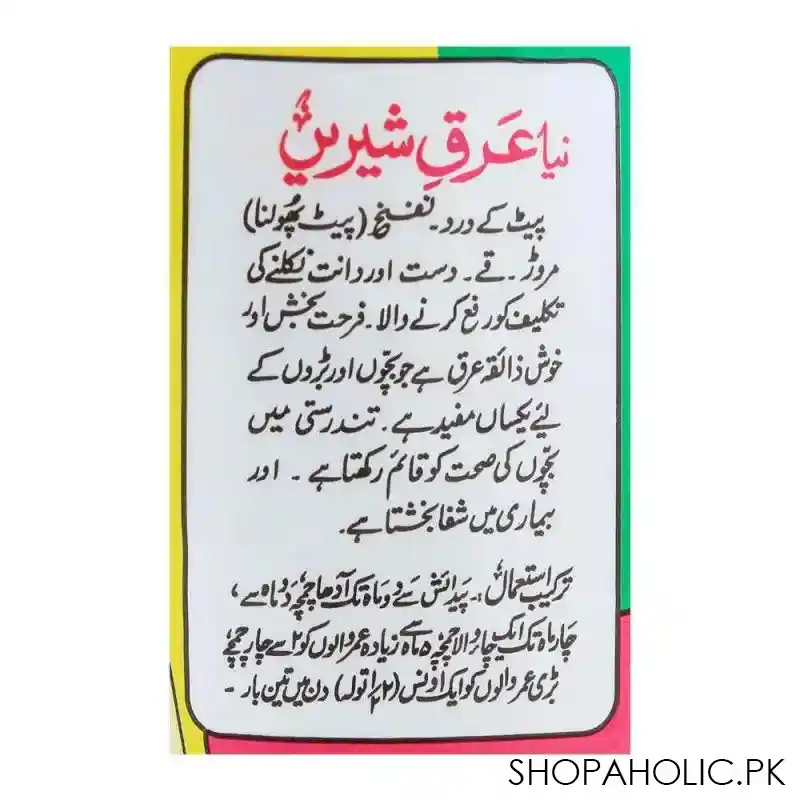 نیا عَرقِ شیریں
پیٹ کے درد۔ نفخ (پیٹ پھُولنا)
مروڑ۔ قے۔ دست اور دانت نکلنے کی
تکلیف کو رفع کرنے والا۔ فرحت بخش اور
خوش ذائقہ عرق ہے جو بچّوں اور بڑوں کے
لئے یکساں مفید ہے۔ تندرستی میں
بچّوں کی صحت کو قائم رکھتا ہے۔ اور
بیماری میں شفا بخشتا ہے۔
ترکیب استعمال:۔ پیدائش سے دو ماہ تک آدھا چمچہ دو ماہ سے،
چار ماہ تک ایک چائے والا چمچہ ۵ ماہ سے زیادہ عمر والوں کو ۲ سے چار چمچے
بڑی عمر والوں کو ایک اونس (۲½ تولہ) دن میں تین بار۔
SHOPAHOLIC.PK